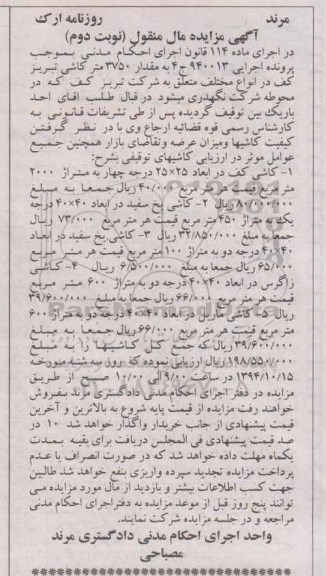 مرند روزنامه ارک
آگهی مزایده مال منقول (نوبت دوم)
در اجرای ماده ۱۱۴ قانون اجرای احکام مدنی بموجب
پرونده اجرایی ۹۴۰۰۱۳ ج۴ به مقدار ۳۷۵۰ متر کاشی تبریز
کف در انواع مختلف متعلق به شرکت تبریز کف که در
محوطه شرکت نگهدری میشود در قبال طلب اقای احد
باریک بین توقیف گردیده پس از طی تشریفات قانونی به
کارشناس رسمی قوه قضائیه ارجاع وی با در نظر گرفتن
کیفیت کاشیها ومیزان عرضه وتقاضای بازار همچنین جمیع
عوامل موثر در ارزیابی کاشیهای توقیفی بشرح:
۱- کاشی کف در ابعاد ۲۵×۲۵ درجه چهار به متراژ ۲۰۰۰
متر مربع قیمت هر متر مربع ۴۰/۰۰۰ ریال جمعا به مبلغ
۸۰/۰۰۰/۰۰۰ ریال ۲- کاشی یخ سفید در ابعاد ۴۰×۴۰ درجه
یک به متراژ ۴۵۰ متر مربع قیمت هر متر مربع ۷۳/۰۰۰ ریال
جمعا به مبلغ ۳۲/۸۵۰/۰۰۰ ریال ۳- کاشی یخ سفید در ابعاد
۴۰×۴۰ درجه دو به متراژ ۱۰۰ متر مربع قیمت هر متر مربع
۶۵/۰۰۰ ریال جمعا به مبلغ ۶/۵۰۰/۰۰۰ ریال ۴- کاشی
زاگرس در ابعاد ۴۰×۴۰ درجه دو به متراژ ۶۰۰ متر مربع
قیمت هر متر مربع ۶۶/۰۰۰ ریال جمعا به مبلغ ۳۹/۶۰۰/۰۰۰
ریال ۵- کاشی ماربل در ابعاد ۴۰×۴۰ درجه دو به متراژ ۶۰۰
متر مربع قیمت هر متر مربع ۶۶/۰۰۰ ریال جمعا به مبلغ
۳۹/۶۰۰/۰۰۰ ریال که جمع کل کاشیها را به مبلغ
۱۹۸/۵۵۰/۰۰۰ ریال ارزیابی نموده که روز سه شنبه مورخه
۱۳۹۴/۱۰/۱۵ در ساعت ۹/۰۰ الی ۱۰/۰۰ صبح از طریق
مزایده در دفتر اجرای احکام مدنی دادگستری مرند بفروش
خواهند رفت مزایده از قیمت پایه شروع به بالاترین و آخرین
قیمت پیشنهادی از جانب خریدار واگذار خواهد شد ۱۰ در
صد قیمت پیشنهادی فی المجلس دریافت برای بقیه بمدت
یکماه مهلت داده خواهد شد که در صورت انصراف یا عدم
پرداخت مزایده تجدید سپرده واریزی بنفع خواهد شد طالبین
جهت کسب اطلاعات بیشتر و بازدید از مال مورد مزایده می
توانند پنج روز قبل از موعد مزایده به دفتراجرای احکام مدنی
مراجعه و در جلسه مزایده شرکت نمایند.
واحد اجرای احکام مدنی دادگستری مرند
مصباحی